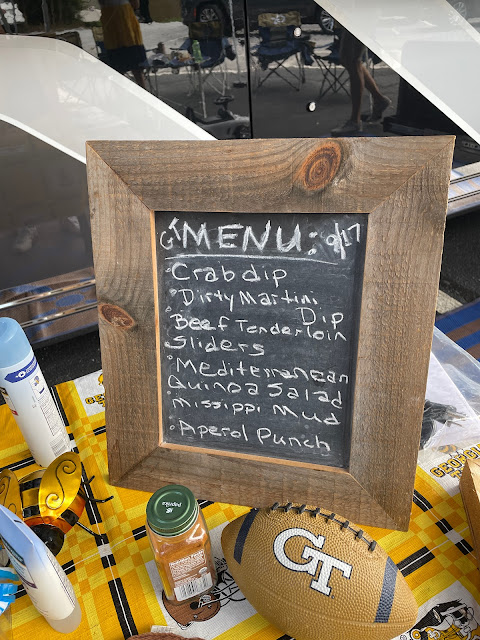 GT MENU: 9/17
• Crab dip
• Dirty Martini
Dip
• Beef Tenderloin
Sliders
• Mediterranean
Quinoa Salad
• Missippi Mud
• Aperol Punch
GT
GEORGIA